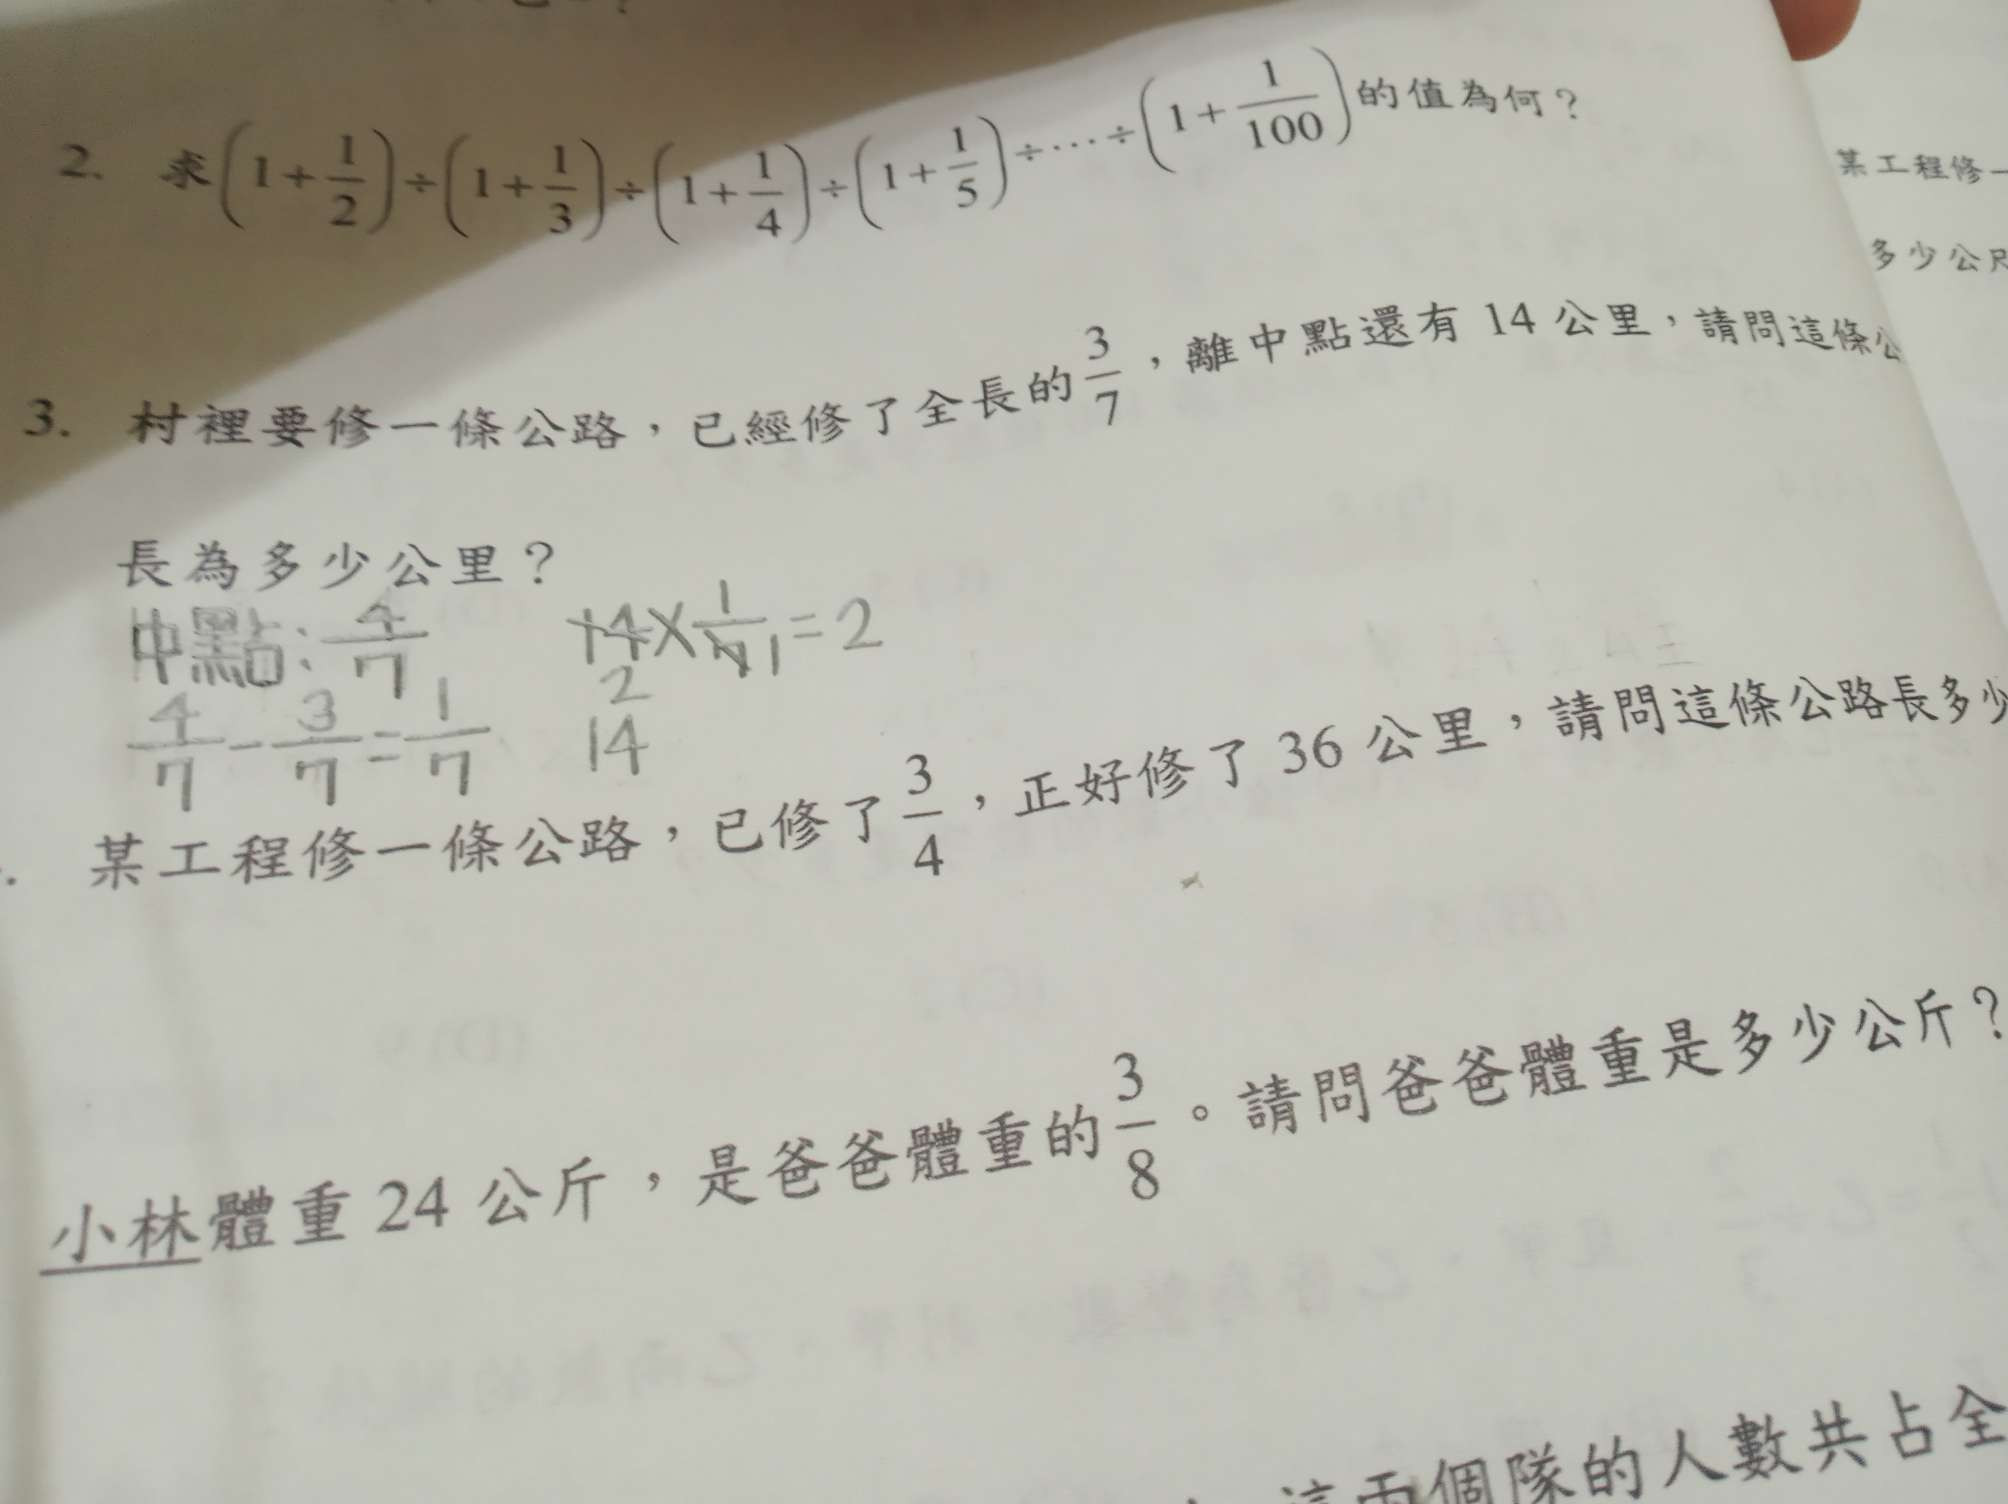 2. 求(1+1/2)÷(1+1/3)÷(1+1/4)÷(1+1/5)÷⋯÷(1+1/100)的值為何？
某工程修一
多少公尺
3. 村裡要修一條公路，已經修了全長的3/7，離中點還有 14 公里，請問這條公
長為多少公里？
中點：4/7 14×1/7=2
4/7-3/7=1/7 14
. 某工程修一條公路，已修了3/4，正好修了 36 公里，請問這條公路長多少
小林體重 24 公斤，是爸爸體重的3/8。請問爸爸體重是多少公斤？
這兩個隊的人數共占全